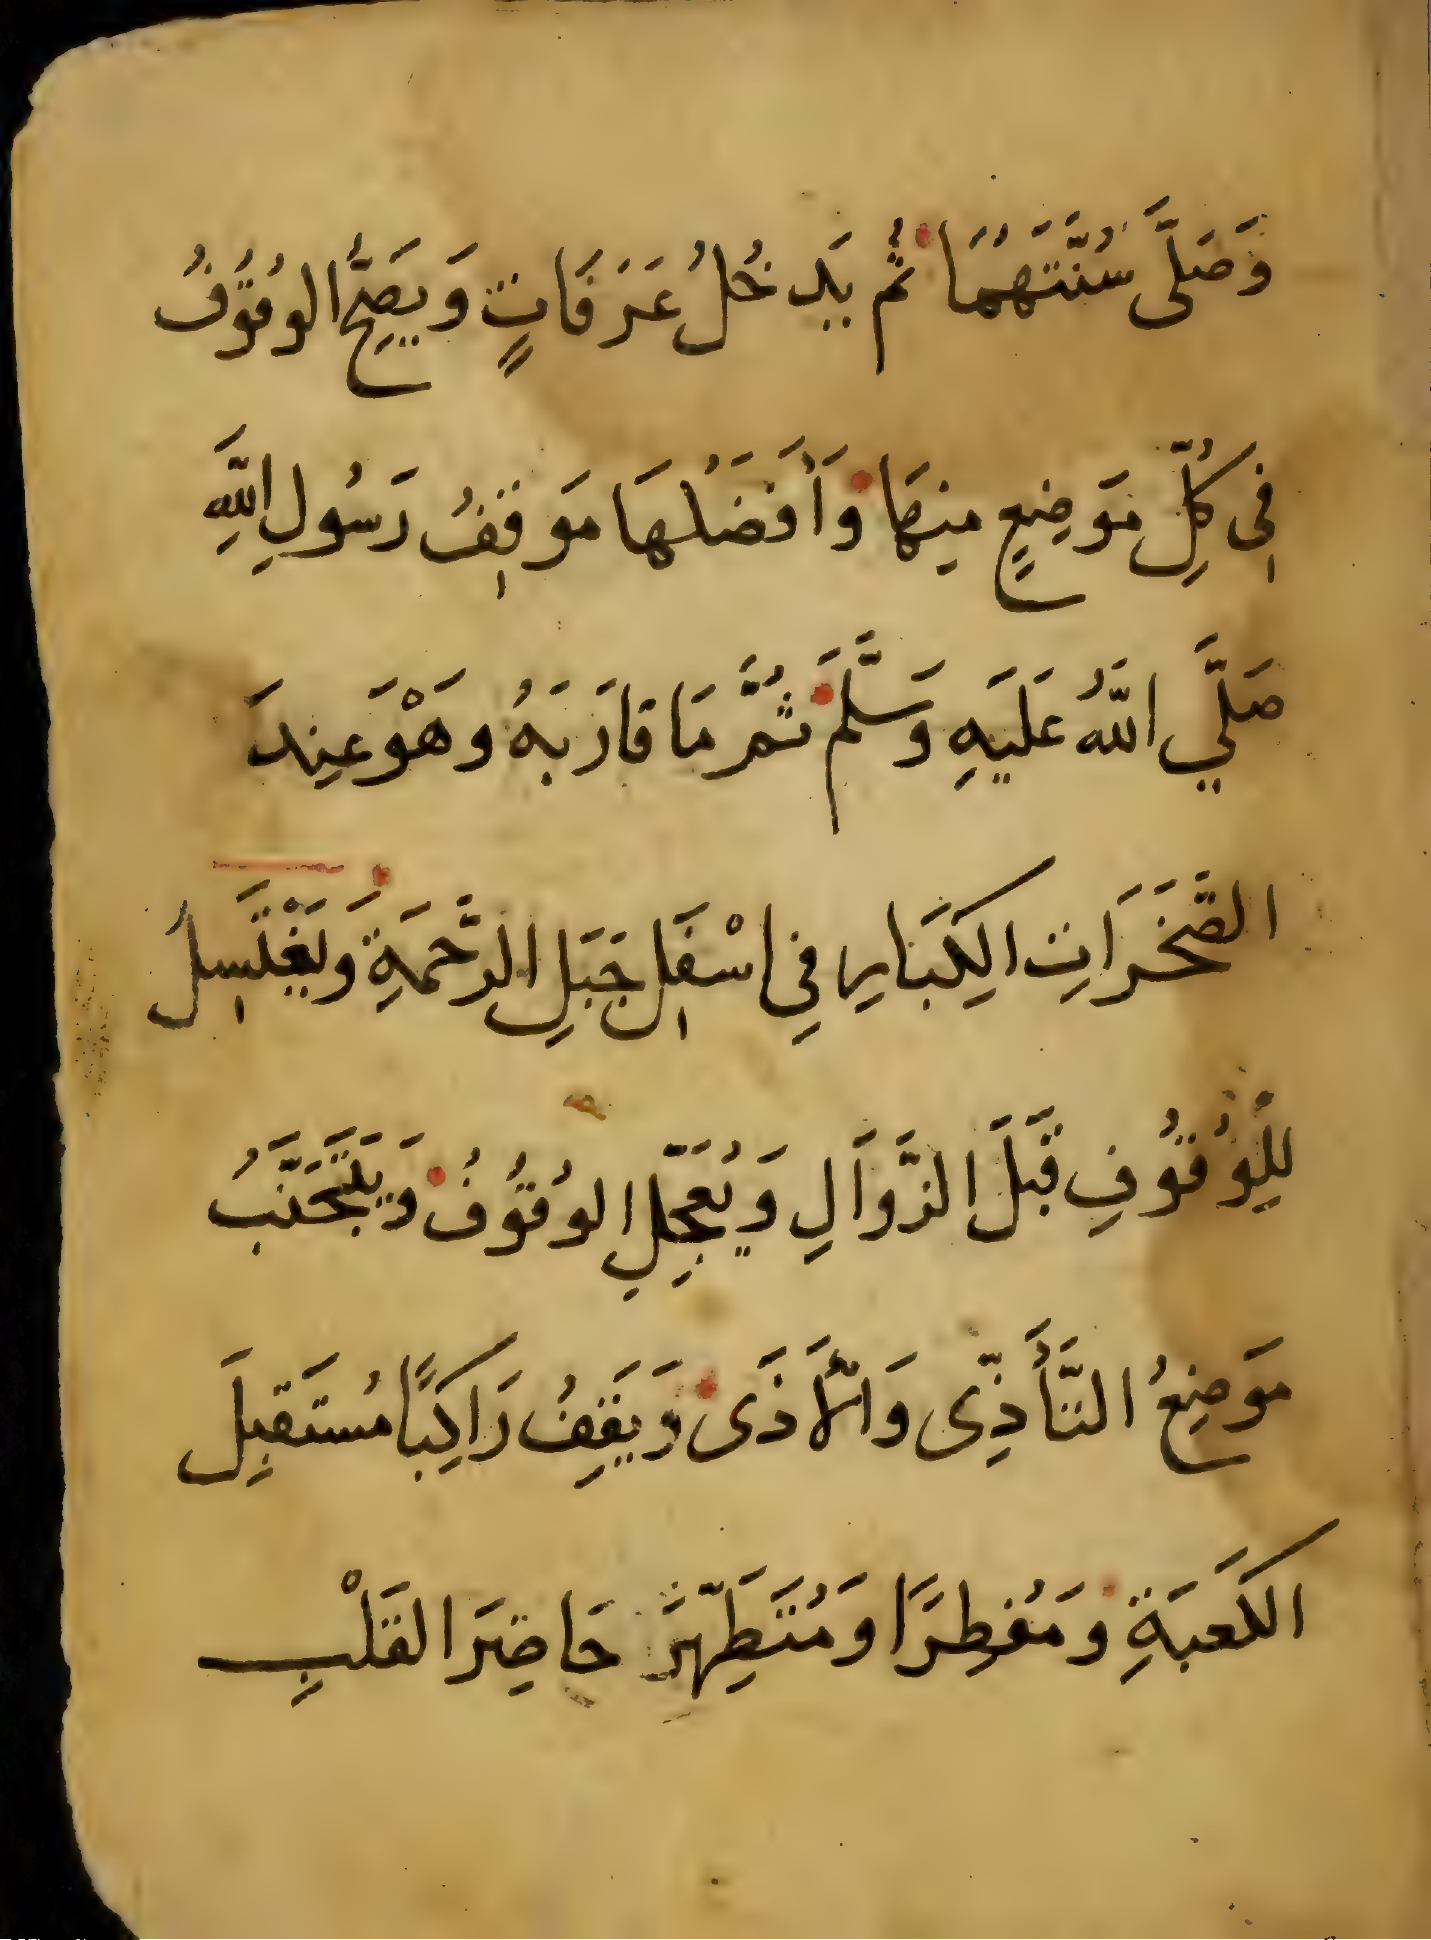 وَصَلَّى سُنَّتَهُمَا ثُم يَدخُلُ عَرَفَاتٍ وَيَصِحُّ الوُقُوفُ
فِي كُلِّ مَوَضِعٍ مِنهَا وَأَفضَلُهَا مَوقِفُ رَسُولِ اللَّهِ
صَلَّي اللَّهُ عَلَيهِ وَسَلَّمَ ثُمَّ مَا قارَبَهُ وَهْوَ عِندَ
الصَّخَرَاتِ الكِبَارِ فِي اسْفَلِ جَبَلِ الرَّحمَةِ وَيَغْتَسِلُ
لِلوُقُوفِ قَبَلَ الزَّوَالِ وَيُعَجِّلِ الوُقُوفُ وَيَتَجَنَّبُ
مَوَضِعُ التَّأَذِّى وَالأَذَى وَيَقِفُ رَاكِبًا مُستَقبِلَ
الكَعبَةِ وَمُفطِرًا وَمُتَطَهِّرَ حَاضِرَ القَلْبِ